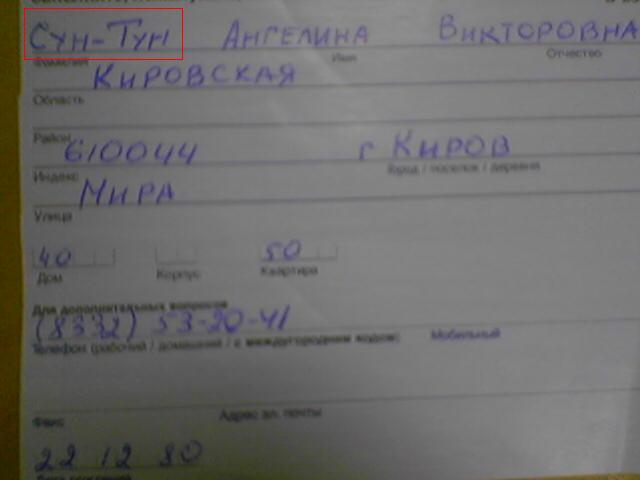 Сун-Тун Ангелина Викторовна
Фамилия Имя Отчество
Кировская
Область
Район
610044 г Киров
Индекс Город / поселок / деревня
Мира
Улица
40 50
Дом Корпус Квартира
Для дополнительных вопросов
(8332) 53-20-41
Телефон (рабочий / домашний / с междугородним кодом) Мобильный
Факс Адрес эл. почты
22 12 80